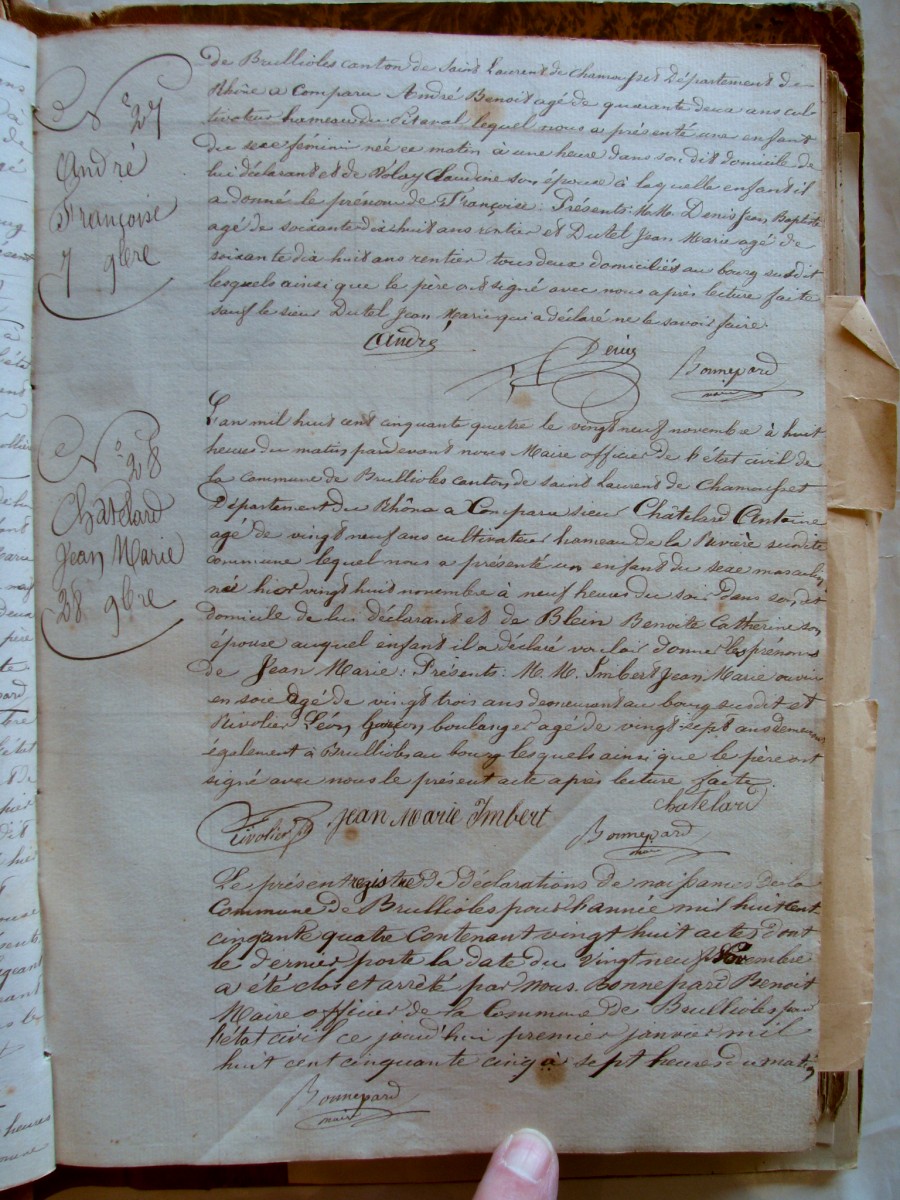 de Brullioles canton de Saint Laurent de Chamousset Département du
Rhône a Comparu André Benoit agé de quarante deux ans cul
tivateur hameau du lequel nous a présenté une enfant
du sexe féminin née ce matin à une heure dans son dit domicile de
lui déclarant et de Claudine son épouse à laquelle enfant il
a donné le prénom de Françoise : Présents : M.M. Denis Jean Baptiste
agé de soixante dix huit ans rentier et Dutel Jean Marie agé de
soixante dix huit ans rentier tous deux domiciliés au bourg susdit
lesquels ainsi que le père ont signé avec nous après lecture faite
sauf le sieur Dutel Jean Marie qui a déclaré ne le savoir faire.
André
Denis
Bonnepard
maire
N° 27
André
Françoise
7 9bre
L'an mil huit cent cinquante quatre le vingt neuf novembre à huit
heures du matin pardevant nous Maire officier de l'état civil de
la commune de Brullioles canton de saint Laurent de Chamousset
Département du Rhône a Comparu sieur Châtelard Antoine
agé de vingt neuf ans cultivateur hameau de la Rivière susdite
commune lequel nous a présenté un enfant du sexe masculin
né hier vingt huit novembre à neuf heures du soir dans son dit
domicile de lui déclarant et de Blein Benoite Catherine son
épouse auquel enfant il a déclaré vouloir donner les prénoms
de Jean Marie : Présents : M.M. Imbert Jean Marie ouvrier
en soie agé de vingt trois ans demeurant au bourg susdit et
Rivolier Léon garçon boulanger agé de vingt sept ans demeurant
également à Brullioles au bourg lesquels ainsi que le père ont
signé avec nous le présent acte après lecture faite.
Chatelard
Rivolier
Jean Marie Imbert
Bonnepard
maire
N° 28
Chatelard
Jean Marie
28 9bre
Le présent registre de déclarations de naissances de la
Commune de Brullioles pour l'année mil huit cent
cinquante quatre contenant vingt huit actes dont
le dernier porte la date du vingt neuf Novembre
a été clos et arrêté par nous Bonnepard Benoit
Maire officier de la Commune de Brullioles pour
l'état civil ce jourd'hui premier janvier mil
huit cent cinquante cinq à sept heures du matin
Bonnepard
maire